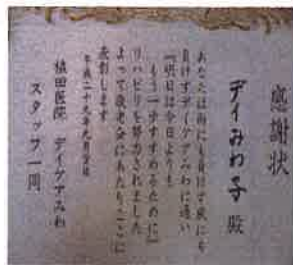 感謝状
デイみわ子 殿
あなたは雨にも負けず風にも
負けずデイケアみわに通い
『明日は今日よりも
もう一歩すすめるために』
リハビリを努力されました
よって敬老会にあたりここに
表彰します
平成二十年九月
植田医院 デイケアみわ
スタッフ一同